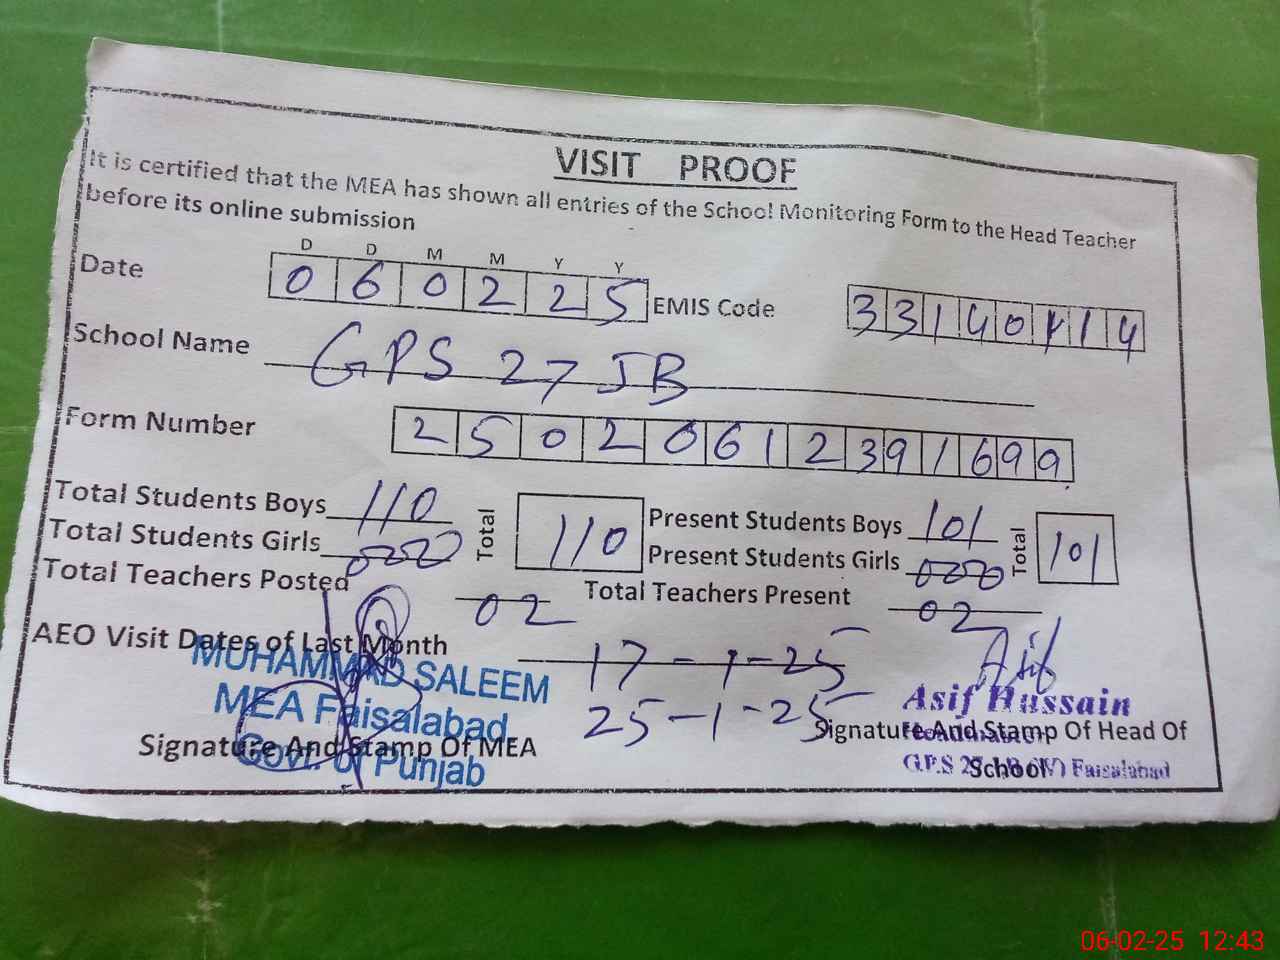 VISIT PROOF
It is certified that the MEA has shown all entries of the School Monitoring Form to the Head Teacher
before its online submission
D D M M Y Y
Date 0 6 0 2 2 5 EMIS Code 3 3 1 4 0 1 1 4
School Name GPS 27 JB
Form Number 2 5 0 2 0 6 1 2 3 9 1 6 9 9
Total Students Boys 110 Total 110 Present Students Boys 101 Total 101
Total Students Girls 000 Present Students Girls 000
Total Teachers Posted 02 Total Teachers Present 02
AEO Visit Dates of Last Month 17-1-25
25-1-25
Asif
MUHAMMAD SALEEM
MEA Faisalabad
Govt. of Punjab
Signature And Stamp Of MEA
Asif Hussain
Signature And Stamp Of Head Of
School
G.P.S Faisalabad
06-02-25 12:43